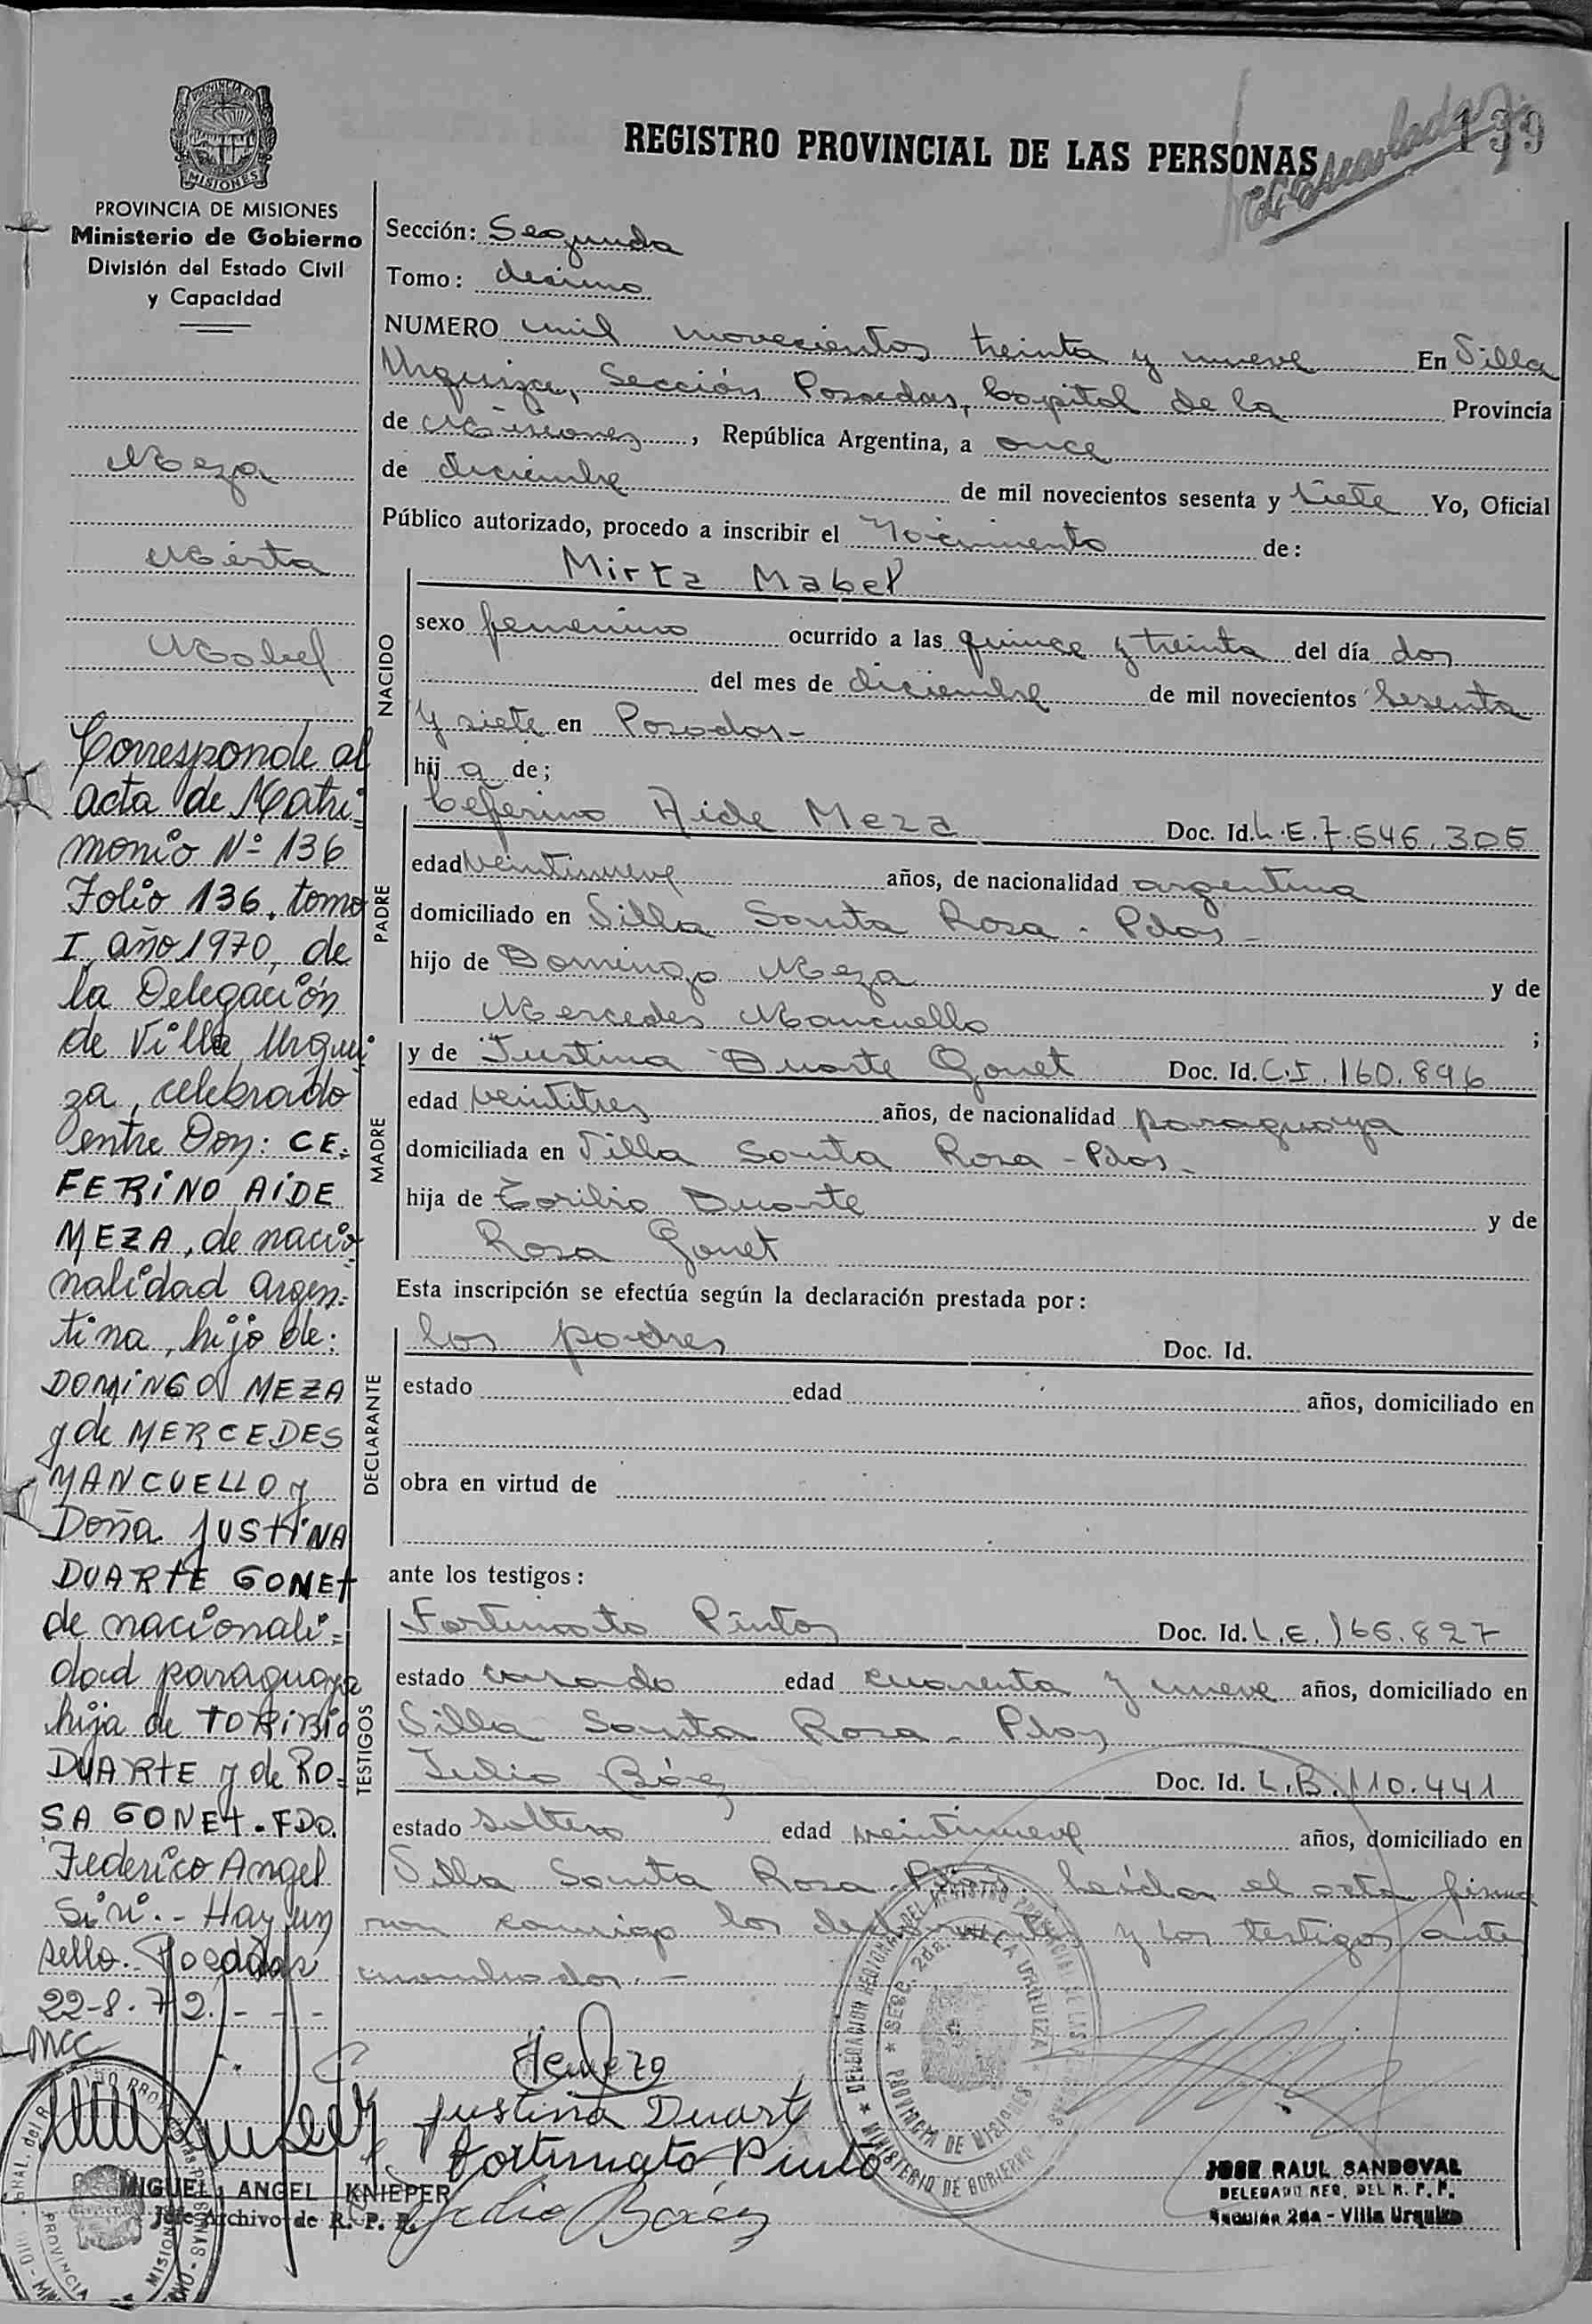 REGISTRO PROVINCIAL DE LAS PERSONAS
139
PROVINCIA DE
MISIONES
PROVINCIA DE MISIONES
Ministerio de Gobierno
División del Estado Civil
y Capacidad
Meza
Mirta
Mabel
Corresponde al
acta de Matri=
monio Nº 136
Folio 136. tomo
I, año 1970, de
la Delegación
de Villa Urqui
za, celebrado
entre Don: CE=
FERINO AIDE
MEZA, de nacio
nalidad argen=
tina, hijo de:
DOMINGO MEZA
y de MERCEDES
MANCUELLO y
Doña JUSTINA
DUARTE GONET
de nacionali=
dad paraguaya
hija de TORIBIO
DUARTE y de RO=
SA GONET. FDO.
Federico Angel
Siri. - Hay un
sello. Posadas
22-8-72. - - -
MCC
MIGUEL ANGEL KNIEPER
Jefe Archivo de R. P. P.
Sección: Segunda
Tomo: decimo
NUMERO mil novecientos treinta y nueve En Villa
Urquiza, Sección Posadas, Capital de la Provincia
de Misiones, República Argentina, a once
de diciembre de mil novecientos sesenta y siete Yo, Oficial
Público autorizado, procedo a inscribir el Nacimiento de:
NACIDO
Mirta Mabel
sexo femenino ocurrido a las quince y treinta del día dos
del mes de diciembre de mil novecientos sesenta
y siete en Posadas-
hij a de;
PADRE
Ceferino Aide Meza Doc. Id. L.E. 7.546.305
edad veintinueve años, de nacionalidad argentina
domiciliado en Villa Santa Rosa - Pdas-
hijo de Domingo Meza y de
Mercedes Mancuello ;
MADRE
y de Justina Duarte Gonet Doc. Id. C.I. 160.896
edad veintitres años, de nacionalidad paraguaya
domiciliada en Villa Santa Rosa - Pdas-
hija de Toribio Duarte y de
Rosa Gonet
Esta inscripción se efectúa según la declaración prestada por:
DECLARANTE
los padres Doc. Id.
estado edad años, domiciliado en
obra en virtud de
ante los testigos:
TESTIGOS
Fortunato Pinto Doc. Id. L.E. 166.827
estado casado edad cuarenta y nueve años, domiciliado en
Villa Santa Rosa - Pdas
Julio Báez Doc. Id. L.B. 110.441
estado soltero edad veintinueve años, domiciliado en
Villa Santa Rosa - Pdas. Leída el acta firma
ron conmigo los declarantes y los testigos ante
nombrados. -
Justina Duarte
Fortunato Pinto
Julio Báez
DELEGACION REGIONAL DEL REGISTRO PROVINCIAL DE LAS PERSONAS
MINISTERIO DE GOBIERNO
SECC. 2da. VILLA URQUIZA
PROVINCIA DE MISIONES
JOSE RAUL SANDOVAL
DELEGADO REG. DEL R. P. P.
Sección 2da - Villa Urquiza